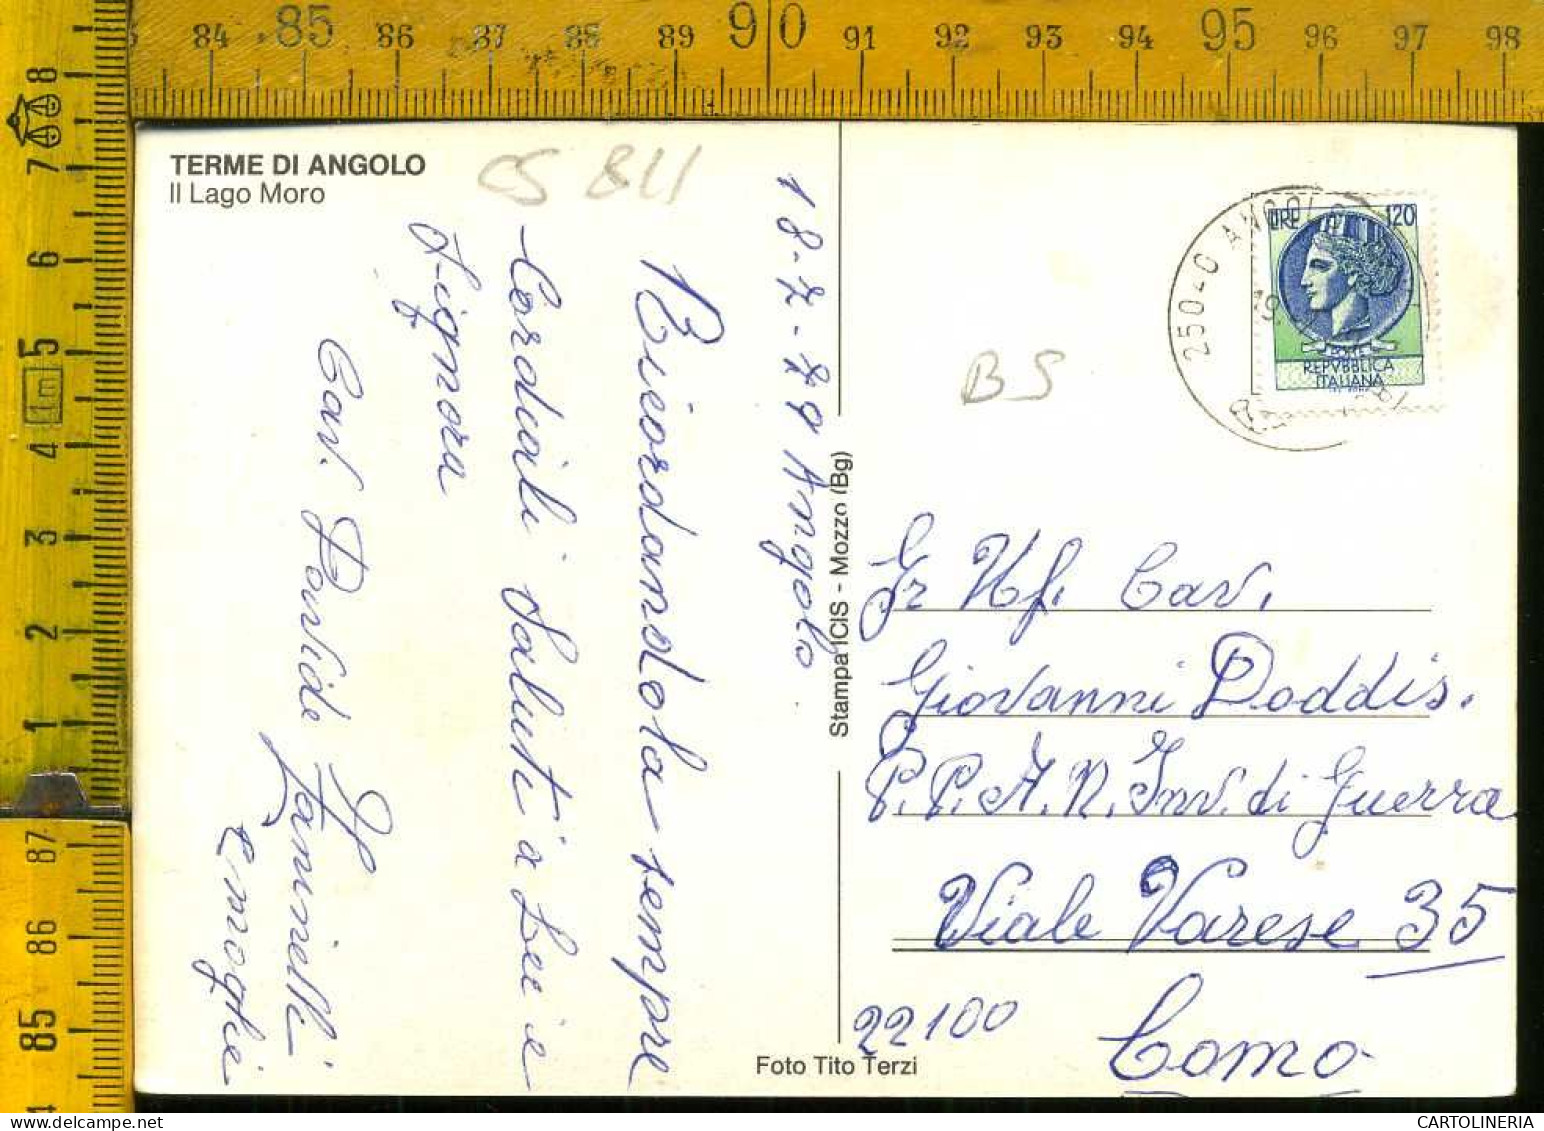 84 85 86 87 88 89 90 91 92 93 94 95 96 97 98
8
7
6
5
1m
4
3
2
1
87
86
85
TERME DI ANGOLO
Il Lago Moro
CS 811
18-7-79 Angolo
Ricordandola sempre
Cordiali Saluti a Lei e
Signora
Cav. Davide Zaninelli
e moglie
Stampa ICIS - Mozzo (Bg)
Foto Tito Terzi
BS
25040 ANGOLO
LIRE 120
REPVBBLICA
ITALIANA
Gr Uf. Cav.
Giovanni Doddis.
P.P.A.N. Inv. di Guerra
Viale Varese 35
22100
Como
CARTOLINERIA